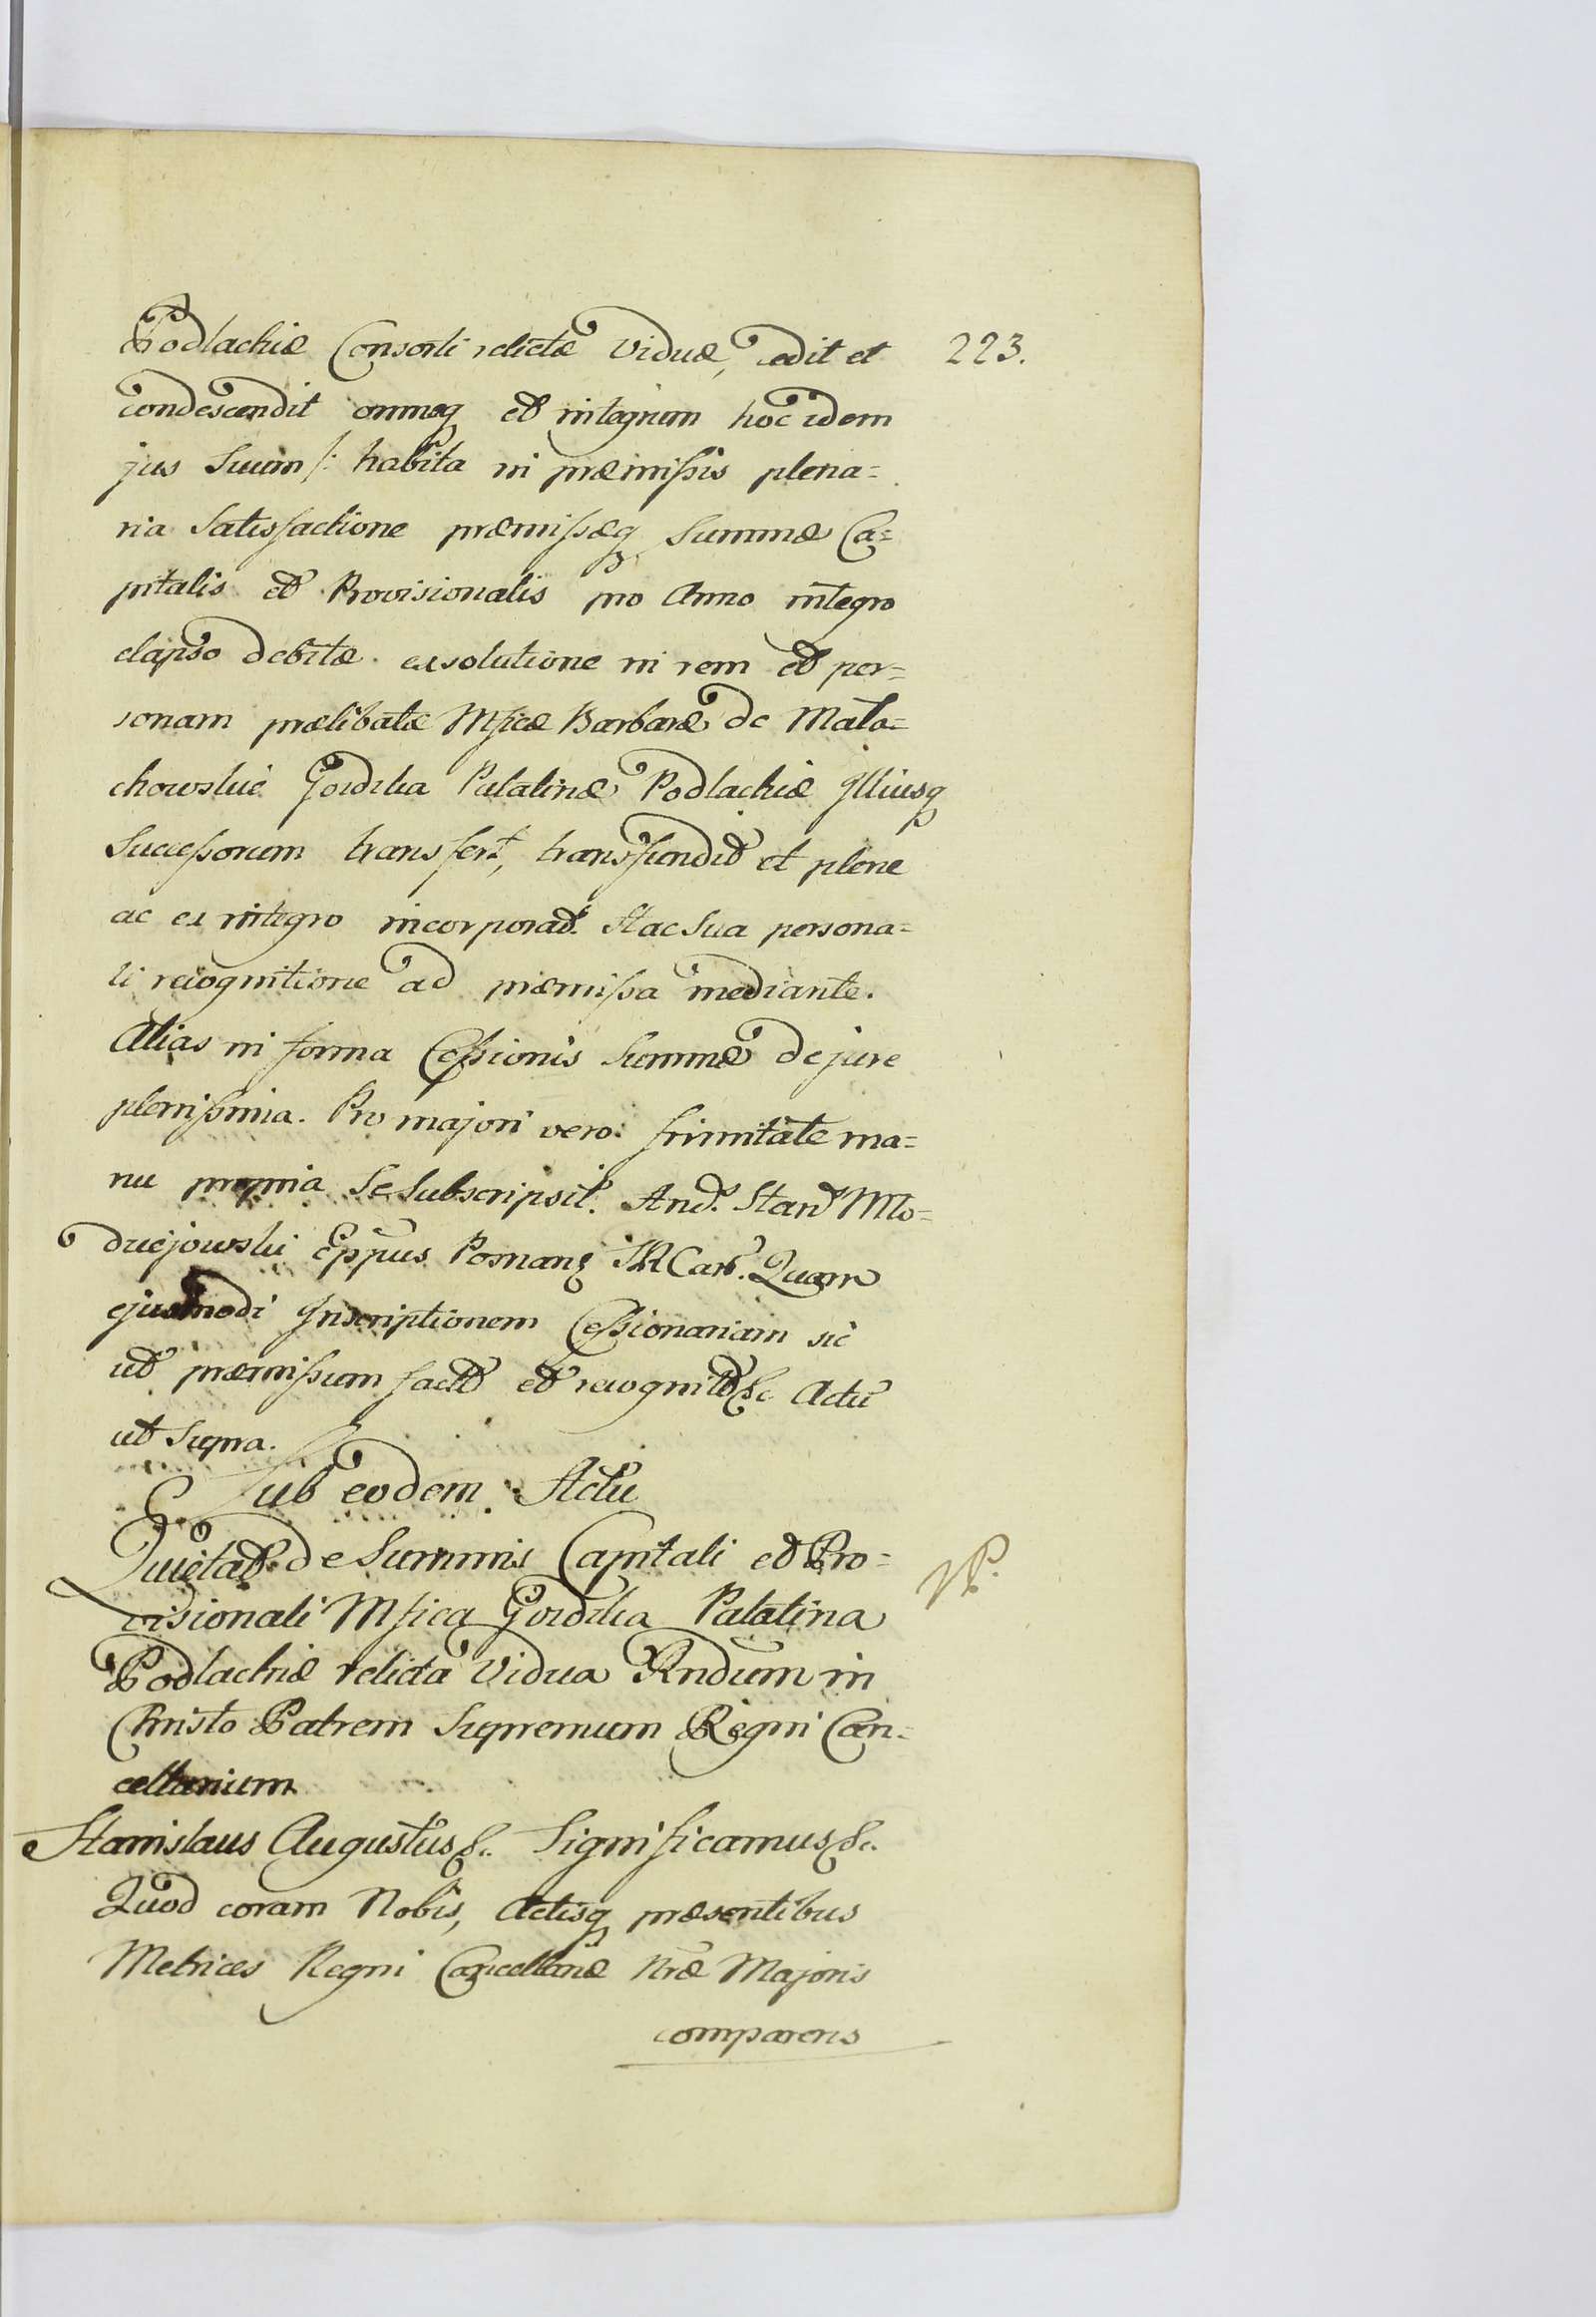 Podlachiæ Consorti relictæ Viduæ, cedit et 223.
condescendit omneq et integrum hoc idem
jus Suum /: habita in præmissis plena=
ria Satisfactione præmissæq Summæ Ca=
pitalis et Provisionalis pro Anno integro
elapso debitæ exsolutione in rem et per=
sonam prælibatæ Mficæ Barbaræ de Mała=
chowskie Gozdzka Palatinæ Podlachiæ Illiusq
Successorum transfert, transfundit et plene
ac ex integro incorporat. Hac Sua persona=
li recognitione ad præmissa mediante.
Alias in forma Cessionis Summæ de jure
plenissima. Pro majori vero firmitate ma=
nu propria Se Subscripsit. And. Stan. Mło=
dziejowski Eppus Posnans SR Canc. Quam
ejusmodi Inscriptionem Cessionariam sic
ut præmissum fact et recognit &c Actū
ut Supra.
Sub eodem Actu
Quietat de Summis Capitali et Pro=
visionali Mfica Gozdzka Palatina NP.
Podlachiæ relicta Vidua Rndum in
Christo Patrem Supremum Regni Can=
cellarium
Stanislaus Augustus &c. Significamus &c.
Quod coram Nobis, Actisq præsentibus
Metrices Regni Cancellariæ Nræ Majoris
comparens